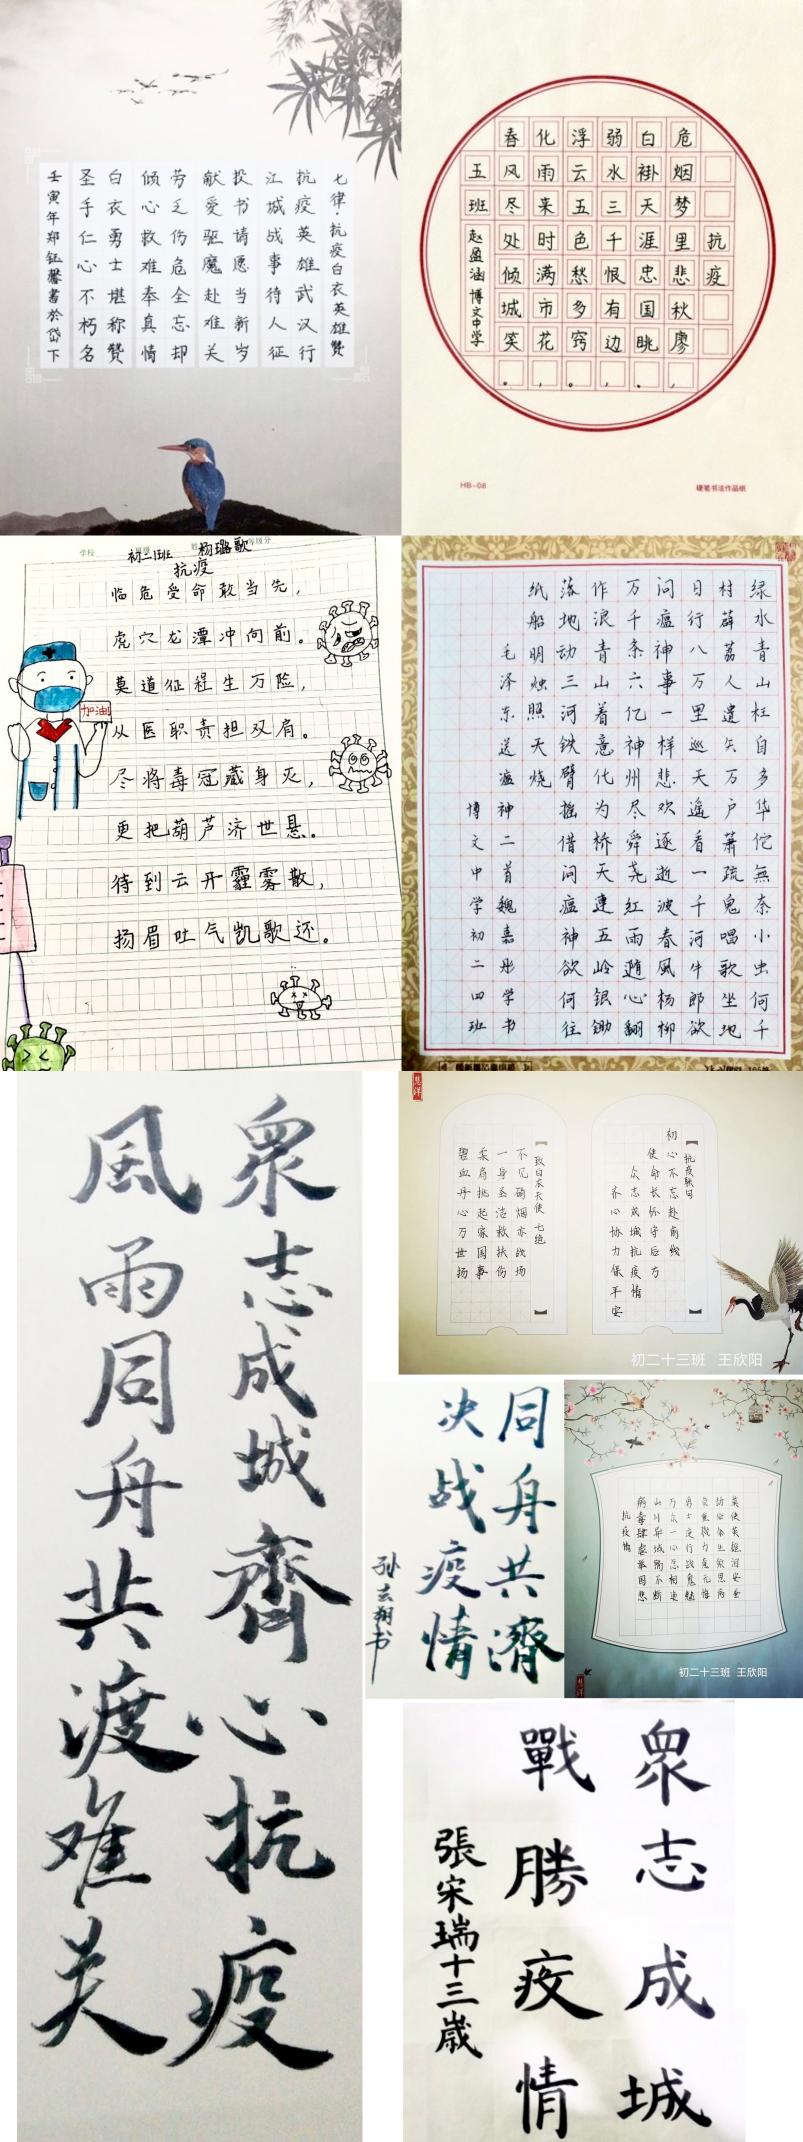 七律·抗疫白衣英雄贊
抗疫英雄武汉行
江城战事待人征
投书请愿当新岁
献爱驱魔赴难关
劳乏伤危全忘却
倾心救难奉真情
白衣勇士堪称贊
圣手仁心不朽名
壬寅年郑钰馨書於岱下
抗疫
危烟梦里悲秋廖，
白褂天涯忠国眺。
弱水三千恨有边，
浮云五色愁多窍。
化雨来时满市花，
春风尽处倾城笑。
五班赵盈涵 博文中学
HB-08
硬笔书法作品纸
学校
初二1班 杨璐歌
抗疫
临危受命敢当先，
虎穴龙潭冲向前。
莫道征程生万险，
从医职责担双肩。
尽将毒冠藏身灭，
更把葫芦济世悬。
待到云开霾雾散，
扬眉吐气凯歌还。
加油
绿水青山枉自多华佗無奈小虫何千
村薜荔人遗矢万户萧疏鬼唱歌坐地
日行八万里巡天遥看一千河牛郎欲
问瘟神事一样悲欢逐逝波春風杨柳
万千条六亿神州尽舜尧红雨随心翻
作浪青山着意化为桥天连五岭银锄
落地动三河铁臂摇借问瘟神欲何往
纸船明烛照天烧
毛泽东送瘟神二首魏嘉彤学书
博文中学初二四班
衆志成城齊心抗疫
風雨同舟共渡难关
抗疫联句
初心不忘赴前线
使命长怀守后方
众志成城抗疫情
齐心协力保平安
致白衣天使 七绝
不见硝烟亦战场
一身圣洁救扶伤
柔肩挑起家国事
碧血丹心万世扬
初二十三班 王欣阳
同舟共濟
决战疫情
勇士逆行战鬼魅
万众一心总相连
山川异域隔不断
抗疫情
初二十三班 王欣阳
衆志成城
戰勝疫情
張宋瑞十三歲